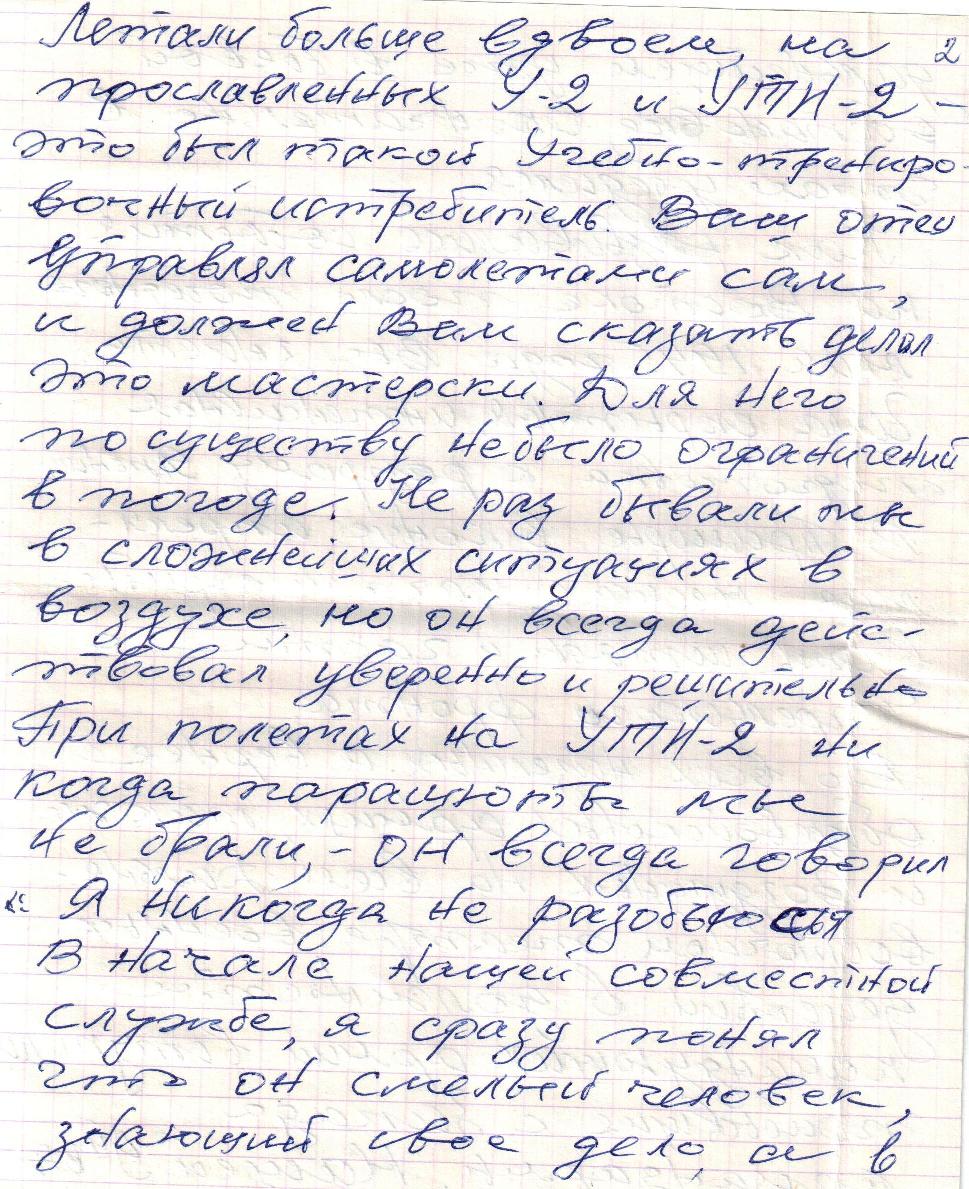 Летали больше вдвоем, на 2
прославленных У-2 и УТИ-2 -
это был такой Учебно-трениро-
вочный истребитель. Ваш отец
Управлял самолетами сам,
и должен Вам сказать делал
это мастерски. Для него
по существу небыло ограничений
в погоде. Не раз бывали мы
в сложнейших ситуациях в
воздухе, но он всегда дейс-
твовал уверенно и решительно
При полетах на УТИ-2 ни
когда парашюты мы
не брали, - он всегда говорил
« Я никогда не разобьюсья
В начале нашей совместной
службе, я сразу понял
что он смелый человек,
знающий свое дело, а в